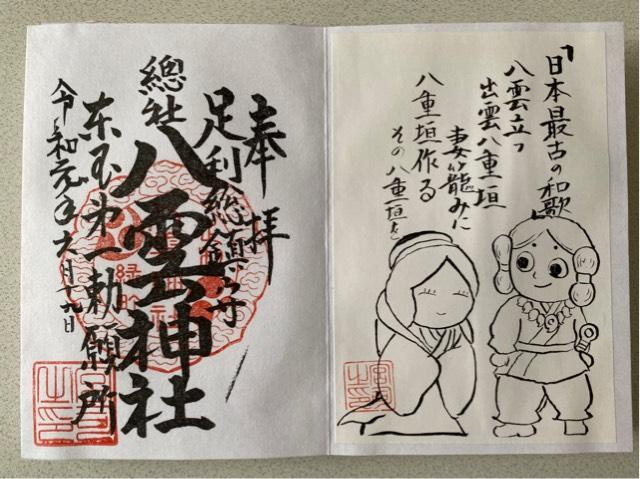 「日本最古の和歌」
八雲立つ
出雲八重垣
妻籠みに
八重垣作る
その八重垣を
奉拝
足利総鎮守
總社
八雲神社
東国第一勅願所
令和元年六月十九日